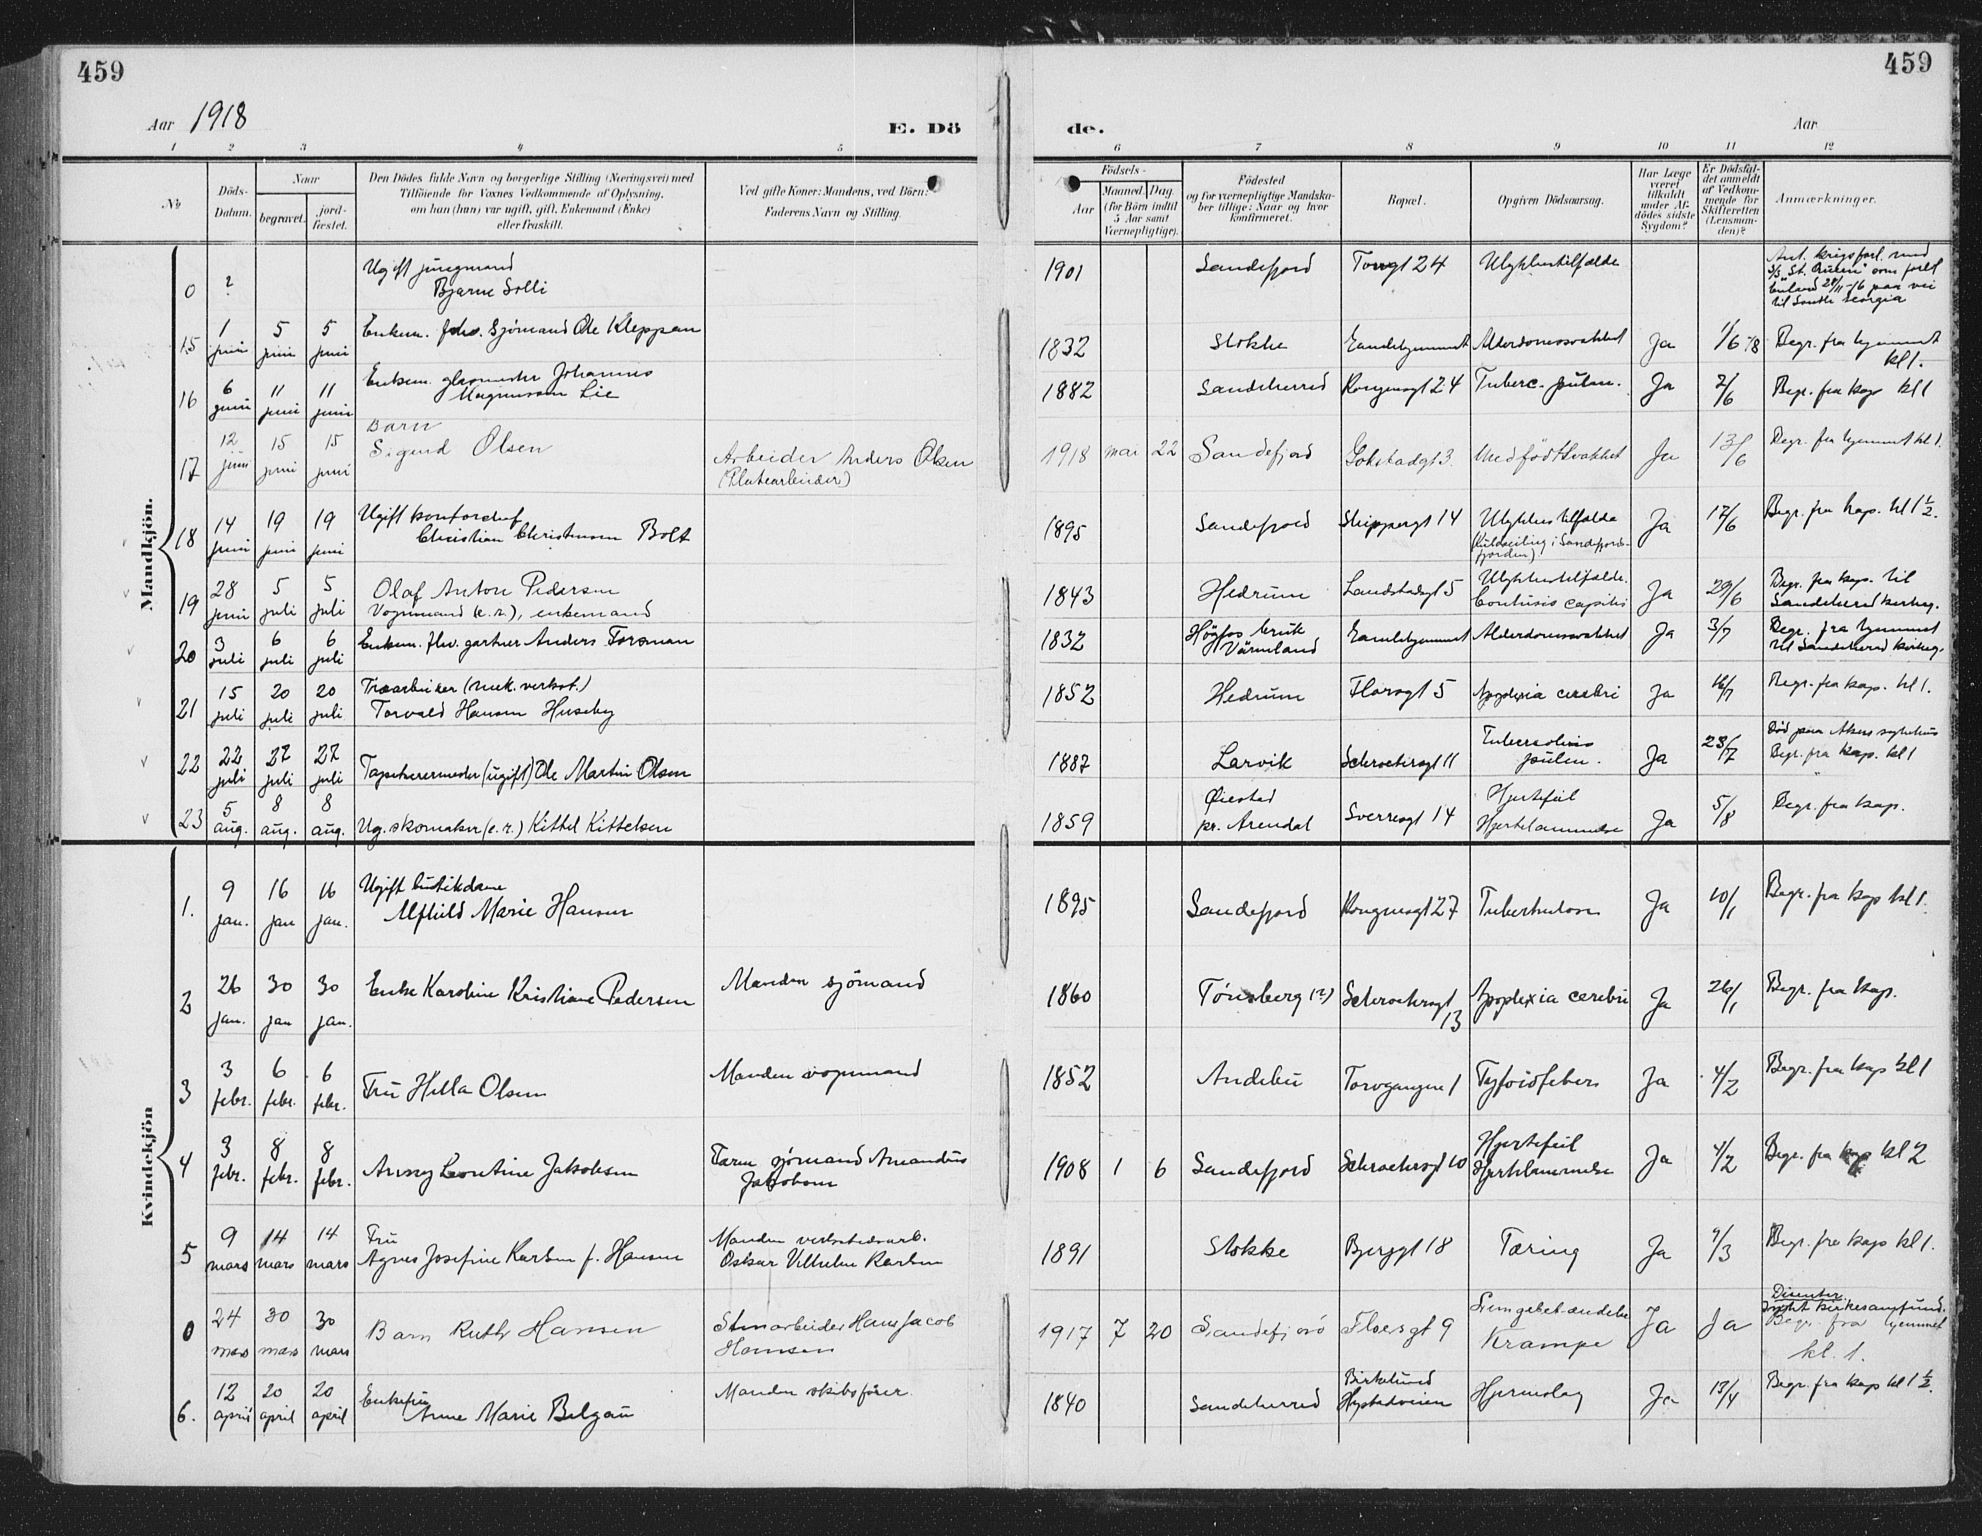 459
459
Aar 1918
E. Dö
de.
Aar
1 2 3 4 5 6 7 8 9 10 11 12
No
Döds-
Datum.
Naar
begravet.
jord-
fæstet.
Den Dödes fulde Navn og borgerlige Stilling (Næringsvei) med
Tilföiende for Voxnes Vedkommende af Oplysning,
om han (hun) var ugift, gift, Enkemand (Enke)
eller fraskilt.
Ved gifte Koner: Mandens, ved Börn:
Faderens Navn og Stilling.
Födsels-
Aar
Maaned. Dag.
(for Börn indtil
5 Aar samt
Værnepligtige).
Födested
og for værnepligtige Mandska-
ber tillige: Naar og hvor
konfirmeret.
Bopæl.
Opgiven Dödsaarsag.
Har Læge
været
tilkaldt
under Af-
dödes sidste
Sygdom?
Er Dödsfal-
det anmeldt
af Vedkom-
mende for
Skifteretten
(Lensman-
den)?
Anmærkninger.
Mandkjön.
0 ? Ugift jungmand
Bjarne Solli
1901 Sandefjord Torvgt 24 Ulykkestilfælde
Ant. krigsforl. med
S/S "St. Quen" som forlt
England 28/11-16 paa vei
til South Georgia
15 1 juni 5 juni 5 juni Enkem. fhv. Sjömand Ole Kleppan
1832 Stokke Gamlehjemmet Alderdomssvakhet Ja 1/6 78 Begr. fra hjemmet
kl 1.
16 6 juni 11 juni 11 juni Enkem. glasmester Johannes
Magnussen Lie
1882 Sandeherred Kongensgt 24 Tuberc. pulm. Ja 7/6 Begr. fra kap kl 1
17 12 juni 15 juni 15 juni Barn
Sigurd Olsen
Arbeider Anders Olsen
(Platearbeider)
1918 mai 22 Sandefjord Gokstadgt 3. Medfödt svakhet Ja 13/6 Begr. fra hjemmet kl 1.
18 14 juni 19 juni 19 juni Ugift kontorchef
Christian Christensen Bolt
1895 Sandefjord Skippergt 14 Ulykkestilfælde
(Kuldseiling i Sandefjords-
fjorden)
Ja 17/6 Begr. fra kap. kl 1 1/2.
19 28 juni 5 juli 5 juli Olaf Anton Pedersen
Vognmand (e.r.), enkemand
1843 Hedrum Landstadsgt 5 Ulykkestilfælde.
Contusio capitis Ja 29/6 Begr. fra kap. til
Sandeherred kirkeg.
20 3 juli 6 juli 6 juli Enkem. fhv. gartner Anders Forsman
1832 Högfos bruk
Värmland Gamlehjemmet Alderdomssvakhet Ja 3/7 Begr. fra hjemmet
til Sandeherred kirkeg.
21 15 juli 20 juli 20 juli Træarbeider (mek. verkst.)
Torvald Hansen Huseby
1852 Hedrum Florsgt 5 Apoplexia cerebri Ja 16/7 Begr. fra kap. kl 1.
22 22 juli 27 juli 27 juli Tapetserermester (ugift) Ole Martin Olsen
1887 Larvik Schroetersgt 11 Tuberculosis
pulm. Ja 23/7 Död paa Akers sykehus
Begr. fra kap. kl 1
23 5 aug. 8 aug. 8 aug. Ug. skomaker (e.r.) Kittel Kittelsen
1859 Öiestad
pr. Arendal Sverresgt 14 Hjertefeil
Hjertelammelse Ja 5/8 Begr. fra kap.
Kvindekjön
1. 9 jan. 16 jan 16 jan. Ugift butikdame
Alfhild Marie Hansen
1895 Sandefjord Kongensgt 27 Tuberkulose Ja 10/1 Begr. fra kap kl 1.
2 26 jan. 30 jan 30 jan. Enke Karoline Kristiane Pedersen Manden sjömand
1860 Tönsberg (?) Schroetersgt
13 Apoplexia cerebri Ja 26/1 Begr. fra kap.
3 3 febr. 6 febr. 6 febr. Fru Hella Olsen Manden vognmand
1852 Andebu Torvgangen 1 Tyfoidfeber Ja 4/2 Begr. fra kap kl 1
4 3 febr. 8 febr. 8 febr. Anny Leontine Jakobsen Faren sjömand Amandus
Jakobsen
1908 1 6 Sandefjord Schroetersgt 10 Hjertefeil
Hjertelammelse Ja 4/2 Begr. fra kap kl 2
5 9 mars 14 mars 14 mars Fru
Agnes Josefine Karlsen f. Hansen
Manden verkstedsarb.
Oskar Vilhelm Karlsen
1891 Stokke Bjergt 18 Tæring Ja 9/3 Begr. fra kap kl 1.
0 24 mars 30 mars 30 mars Barn Ruth Hansen Stenarbeider Hans Jacob
Hansen
1917 7 20 Sandefjord Floesgt 9 Krampe Ja Ja Dissenter.
kirkesamfund.
Begr. fra hjemmet
kl. 1.
6. 12 april 20 april 20 april Enkefru
Anne Marie Belgau Manden skibsförer
1840 Sandeherred Birkelund
Hystadveien Hjerneslag Ja 13/4 Begr. fra kap kl 1 1/2.